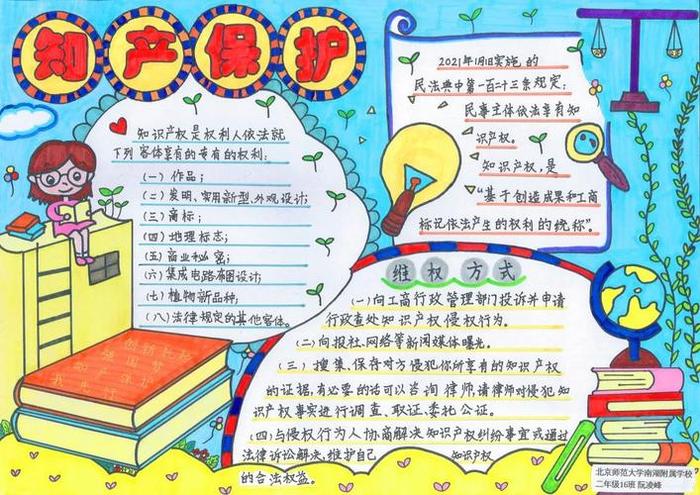 知产保护
知识产权是权利人依法就
下列客体享有的专有的权利:
(一)作品;
(二)发明、实用新型、外观设计;
(三)商标;
(四)地理标志;
(五)商业秘密;
(六)集成电路布图设计;
(七)植物新品种;
(八)法律规定的其他客体。
2021年1月1日实施的
民法典中第一百二十三条规定:
民事主体依法享有知
识产权。
知识产权,是
“基于创造成果和工商
标记依法产生的权利的统称”。
维权方式
(一)向工商行政管理部门投诉并申请
行政查处知识产权侵权行为。
(二)向报社、网络等新闻媒体曝光。
(三)搜集、保存对方侵犯你所享有的知识产权
的证据,有必要的话可以咨询律师,请律师对侵犯知
识产权事实进行调查、取证、委托公证。
(四)与侵权行为人协商解决知识产权纠纷事宜或通过
法律诉讼解决、维护自己 知识产权
的合法权益。
北京师范大学南湖附属学校
二年级16班 阮凌峰